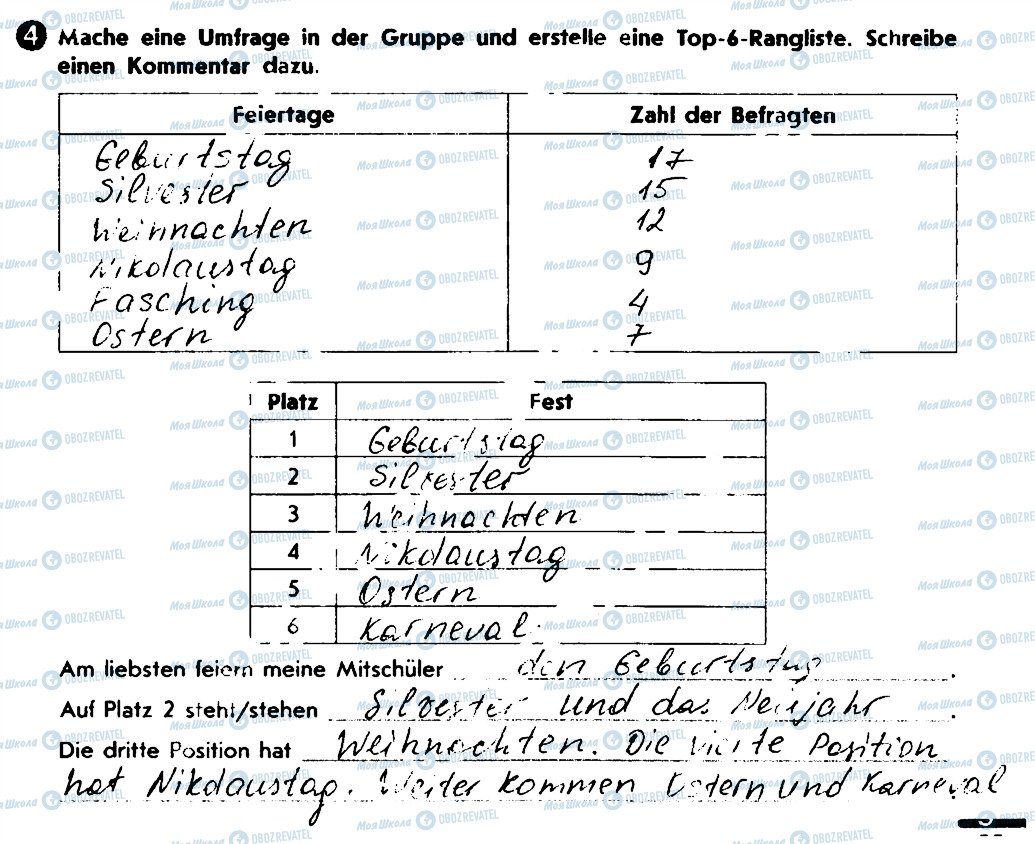 4 Mache eine Umfrage in der Gruppe und erstelle eine Top-6-Rangliste. Schreibe
einen Kommentar dazu.
Feiertage Zahl der Befragten
Geburtstag 17
Silvester 15
Weihnachten 12
Nikolaustag 9
Fasching 4
Ostern 7
Platz Fest
1 Geburtstag
2 Silvester
3 Weihnachten
4 Nikolaustag
5 Ostern
6 Karneval.
Am liebsten feiern meine Mitschüler den Geburtstag.
Auf Platz 2 steht/stehen Silvester und das Neujahr.
Die dritte Position hat Weihnachten. Die vierte Position
hat Nikolaustag. Weiter kommen Ostern und Karneval
Моя Школа OBOZREVATEL